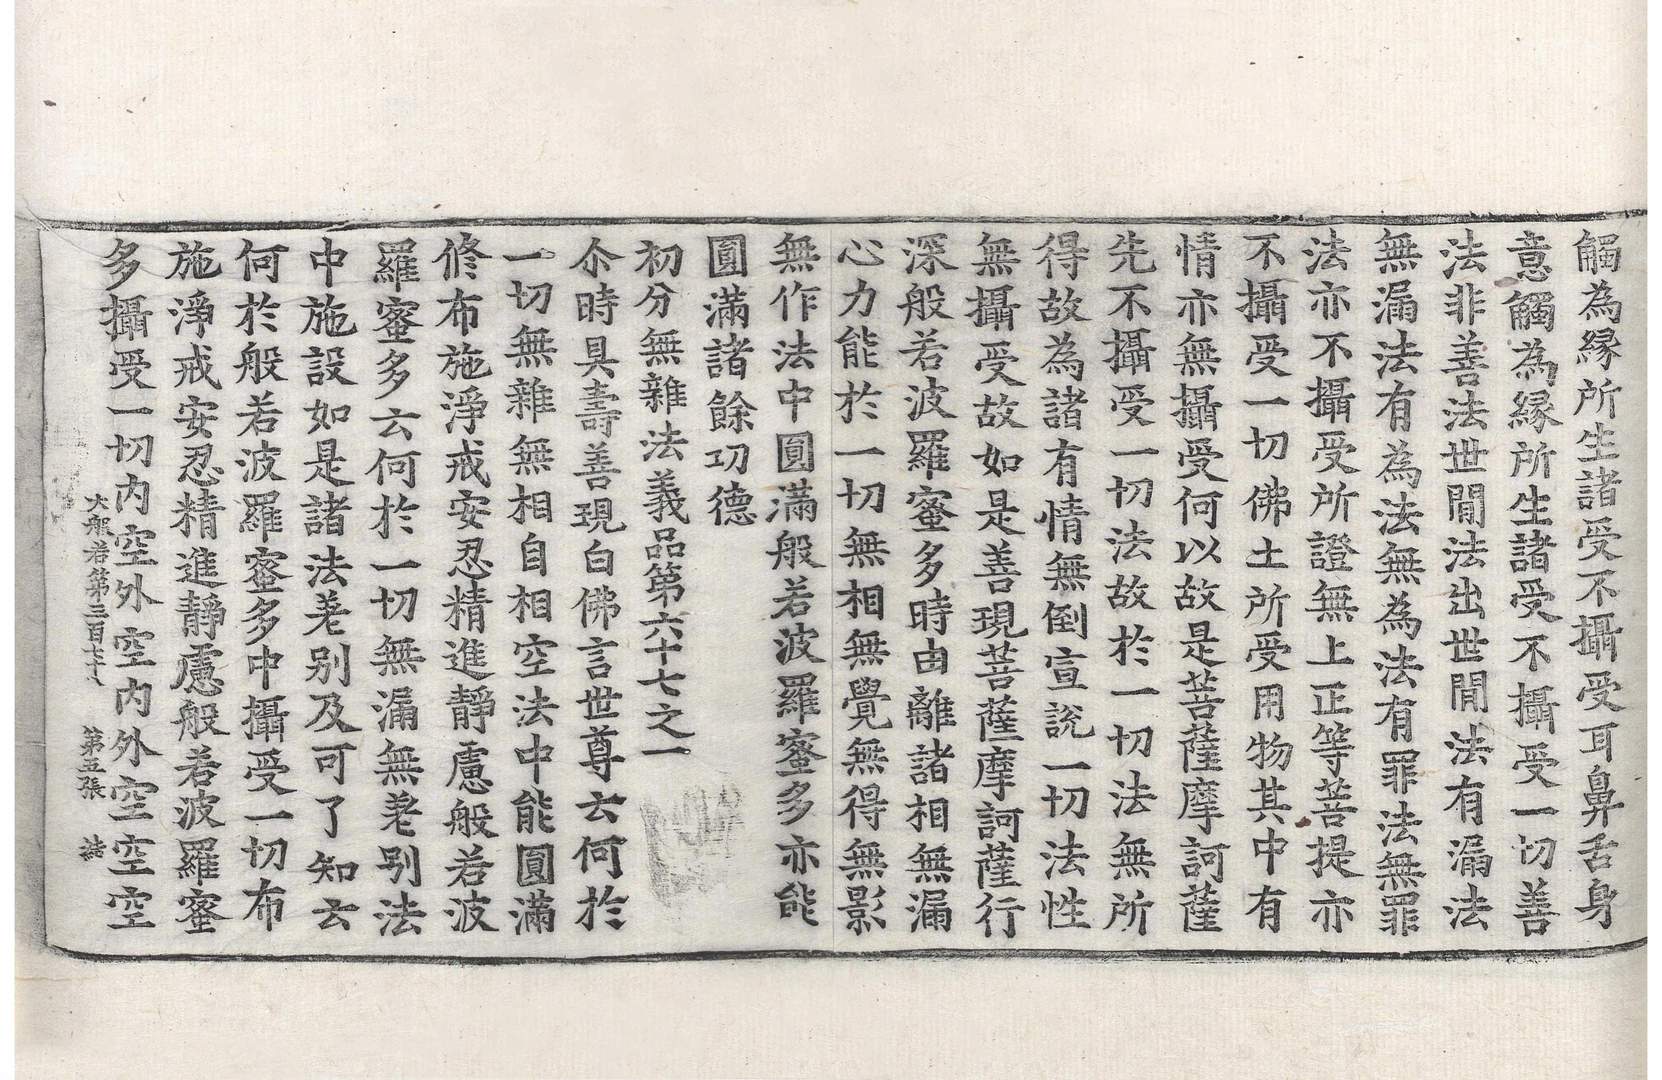 觸為緣所生諸受不攝受耳鼻舌身
意觸為緣所生諸受不攝受一切善
法非善法世閒法出世閒法有漏法
無漏法有為法無為法有罪法無罪
法亦不攝受所證無上正等菩提亦
不攝受一切佛土所受用物其中有
情亦無攝受何以故是菩薩摩訶薩
先不攝受一切法故於一切法無所
得故為諸有情無倒宣說一切法性
無攝受故如是善現菩薩摩訶薩行
深般若波羅蜜多時由離諸相無漏
心力能於一切無相無覺無得無影
無作法中圓滿般若波羅蜜多亦能
圓滿諸餘功德
初分無雜法義品第六十七之一
尒時具壽善現白佛言世尊云何於
一切無雜無相自相空法中能圓滿
修布施淨戒安忍精進靜慮般若波
羅蜜多云何於一切無漏無差別法
中施設如是諸法差別及可了知云
何於般若波羅蜜多中攝受一切布
施淨戒安忍精進靜慮般若波羅蜜
多攝受一切內空外空內外空空空
大般若第三百七十八 第五張 法